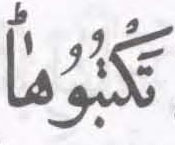 تَكْتُبُوهَاؕ